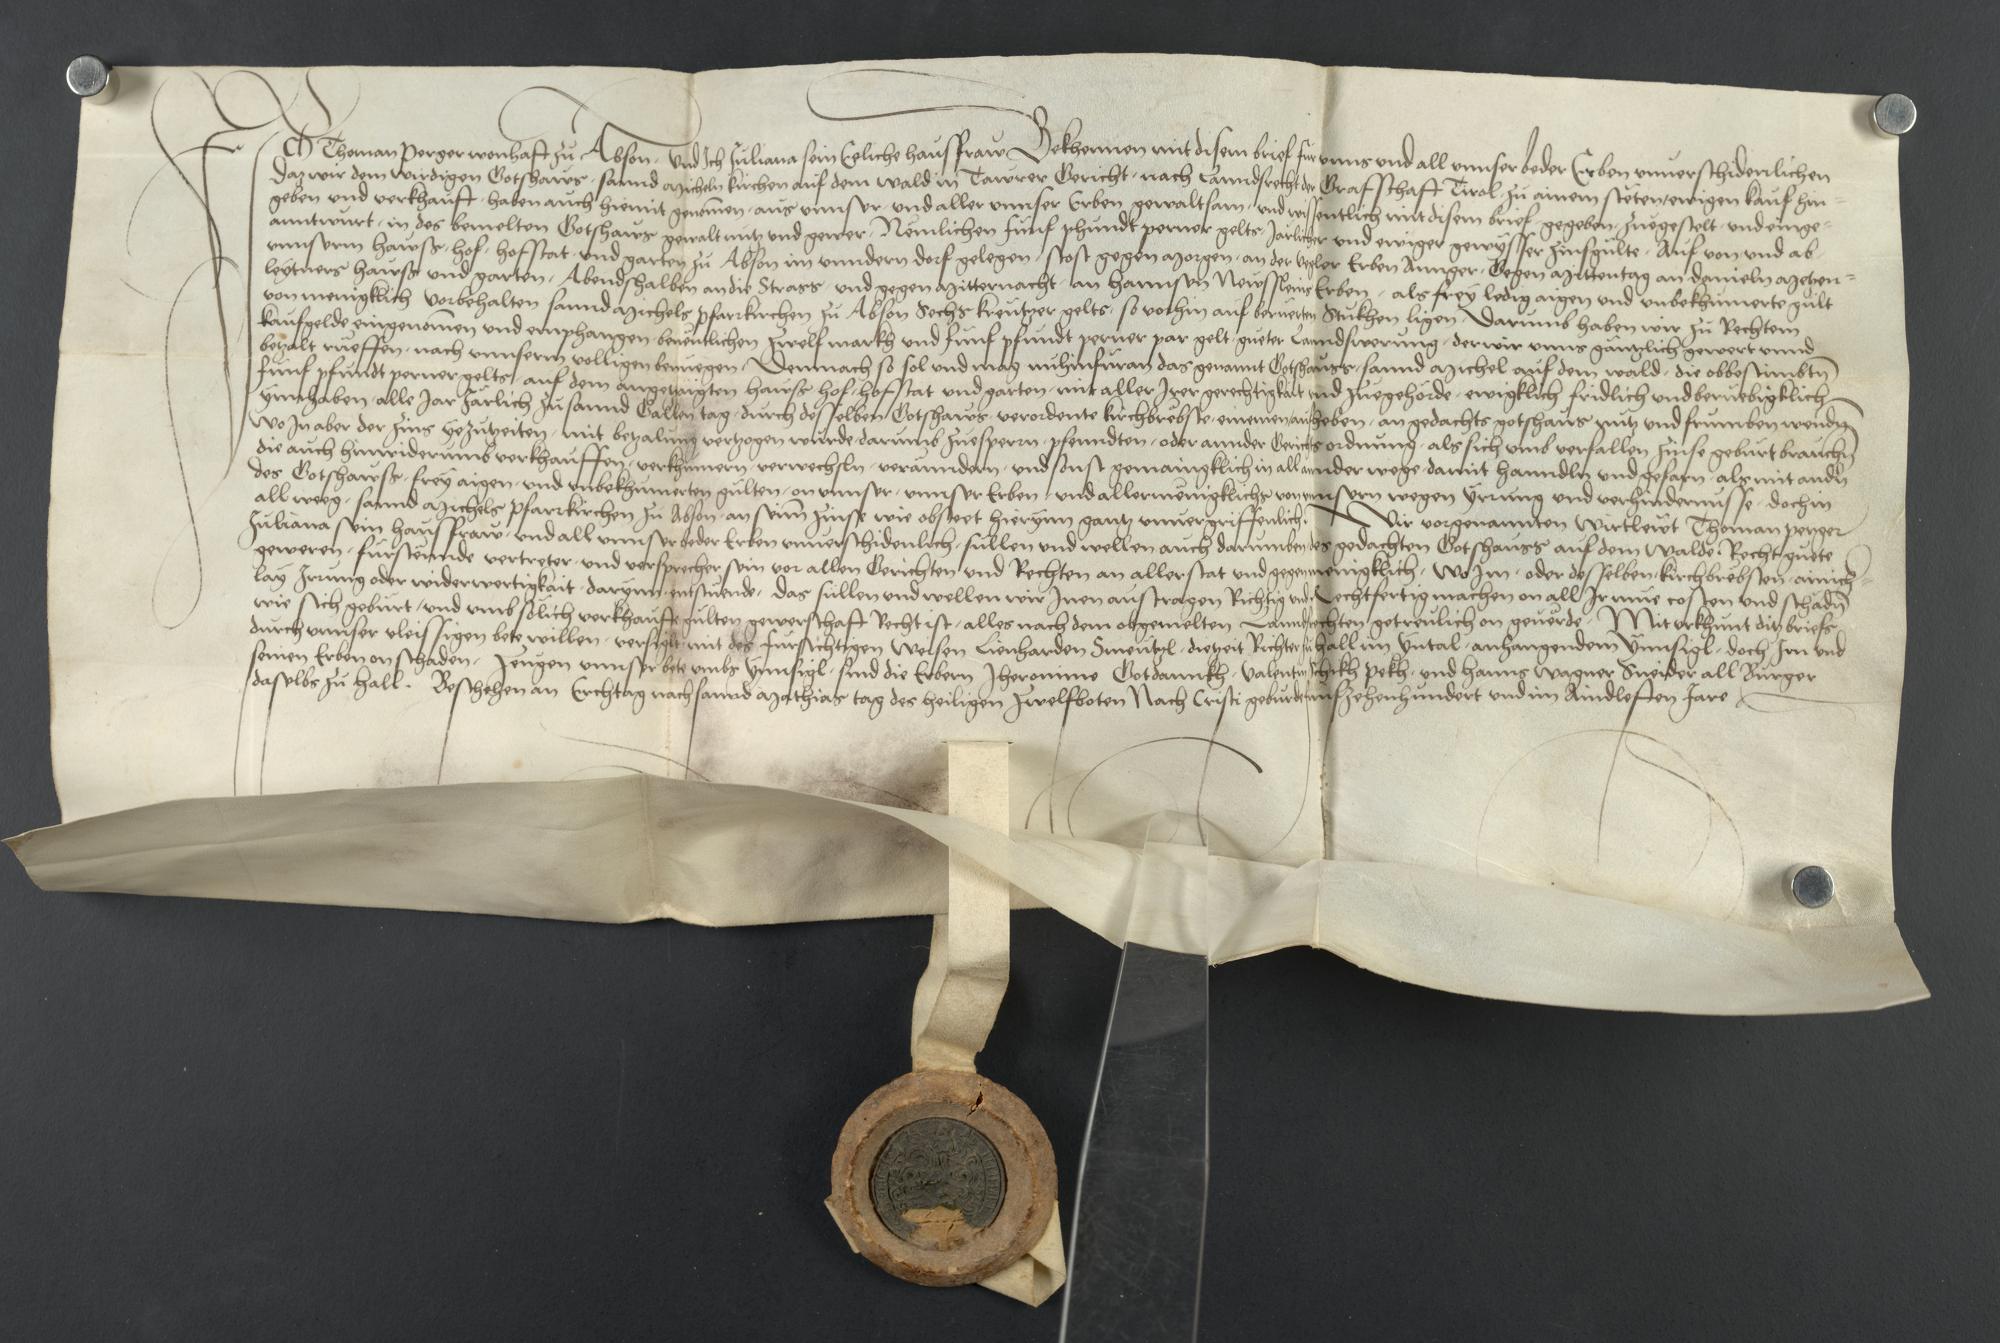 Ich Thoman Perger wonhaft zu Abson · und Ich Juliana sein Eeliche hausfraw Bekhennen mit disem brief für unns und all unnser beder Erben unverschidenlichen
Daz wir dem wirdigen Gotshaws · sannd Micheln kirchen auf dem wald in Tawrer Gericht · nach Lanndsrecht der Grafschaft Tirol · zu ainem steten ewigen kauf hin-
geben und verkhauft · haben auch hiemit genomen · aus unnser · und aller unnser Erben gewaltsam · und wissentlich mit disem brief · gegeben · zuegestelt · und einge-
anntwurt · in des bemelten Gotshaws gewalt nutz und gewer · Nemlichen fünf phundt perner gelts · Järlicher und ewiger gewysser zinsgülte · Auf von und ab ·
unnserm hawss · hof · hofstat · und garten zu Abson im unndern dorf gelegen · stost gegen Morgen · an der Erben Annger · Gegen Mittentag an
leytners hawss und garten · Abendshalben an die Strass · und gegen Mitternacht · an Hannsen Erben · als frey ledig aigen und unbekhümerte gült
von menigklich vorbehalten sannd Michels pfarrkirchen zu Abson Sechs kreutzer gelts · so vorhin auf beruerten Stukhen ligen Darumb haben wir zu Rechtem
kaufgelde eingenomen und emphangen · benentlichen zwelf markh und fünf pfundt perner par gelt · gueter Lanndswerung · der wir unns gäntzlich gewert unnd
betzalt rüeffen · nach unnserm volligen benuegen · Demnach so sol und mag nuhinfüran das genannt Gotshawss · sannd Michel auf dem wald · die obbestimbtn
fünf pfundt perner gelts · auf dem angetzaigten hawss hof · hofstat und garten · mit aller Irer gerechtigkait und zuegehörde · ewigklich fridlich und beruebigklich
ynnhaben · alle Jar Järlich zu sannd Gallen tag · durch desselben Gotshaws · verordente kirchbrebste · einemen aufheben · an gedachts gotshaus nutz und frumben wenndn
Wo In aber der zins yezutzeiten · mit betzalung vertzogen wurde · darumb zuesperrn · pfenndten · oder annder Gerichts ordnung · als sich umb verfallen zinse geburt brauchn
die auch hinwiderumb verkhauffen · verkhumern · verwechsln · veränndern · und sonst gemaingklich in all annder wege damit hanndln und gefarn · als mit andn
des Gotshawss · frey aigen · und unbekhumerten gülten · on unnser · unnser Erben · und allermenigklichs von unnsern wegen Yrrung und verhindernusse · doch in
all weeg · sannd Michels pfarrkirchen zu Abson · an seinn zinsse wie obsteet hierynn gantz unvergriffenlich · Wir vorgenannten Wirtlewt Thoman Perger
Juliana sein hausfraw · und all unnser beder Erben unverschidenlich · süllen und wellen auch darumben des gedachten Gotshauss auf dem Walde · Recht guete
geweren · fürsteennde vertreter · und versprecher sein vor allen Gerichten und Rechten an aller stat und gegen menigklich · Wo Im · oder desselben · kirchbrebsten · ainich-
lay Irrung oder widerwertigkait · darynn entstuende · Das süllen und wellen wir Inen austragen Richtig und Rechtfertig machen on all Ir müe costen und schadn
wie sich geburt · und umb sölich verkhauft gülten gewerschaft Recht ist · alles nach dem obgemelten Lanndsrechten getreulich on geverde · Mit urkhunt ditz briefs
durch unnser vleissigen bete willen · versiglt mit des fürsichtigen Weisen Lienharden Smeutzl · dietzeit Richter zu hall im Yntal · anhangendem Ynnsigl · doch Im und
seinen Erben on schaden · Zeugen unnser bete umbs Ynnsigl · sind die Erbern Jheronime Gotdannkh · Valentin Schikh pekh · und hanns Wagner Sneider all Burger
daselbs zu hall · Beschehen an Erchtag nach sannd Mathias tag des heiligen Zwelfboten Nach Cristi geburde funfzehenhundert und im Aindleften Jare